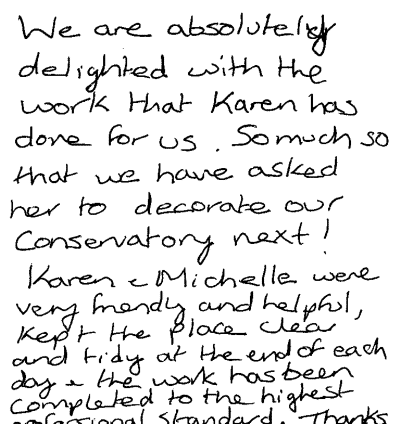 We are absolutely
delighted with the
work that Karen has
done for us. So much so
that we have asked
her to decorate our
Conservatory next!
Karen & Michelle were
very friendly and helpful,
kept the place clear
and tidy at the end of each
day & the work has been
completed to the highest
professional standard. Thanks